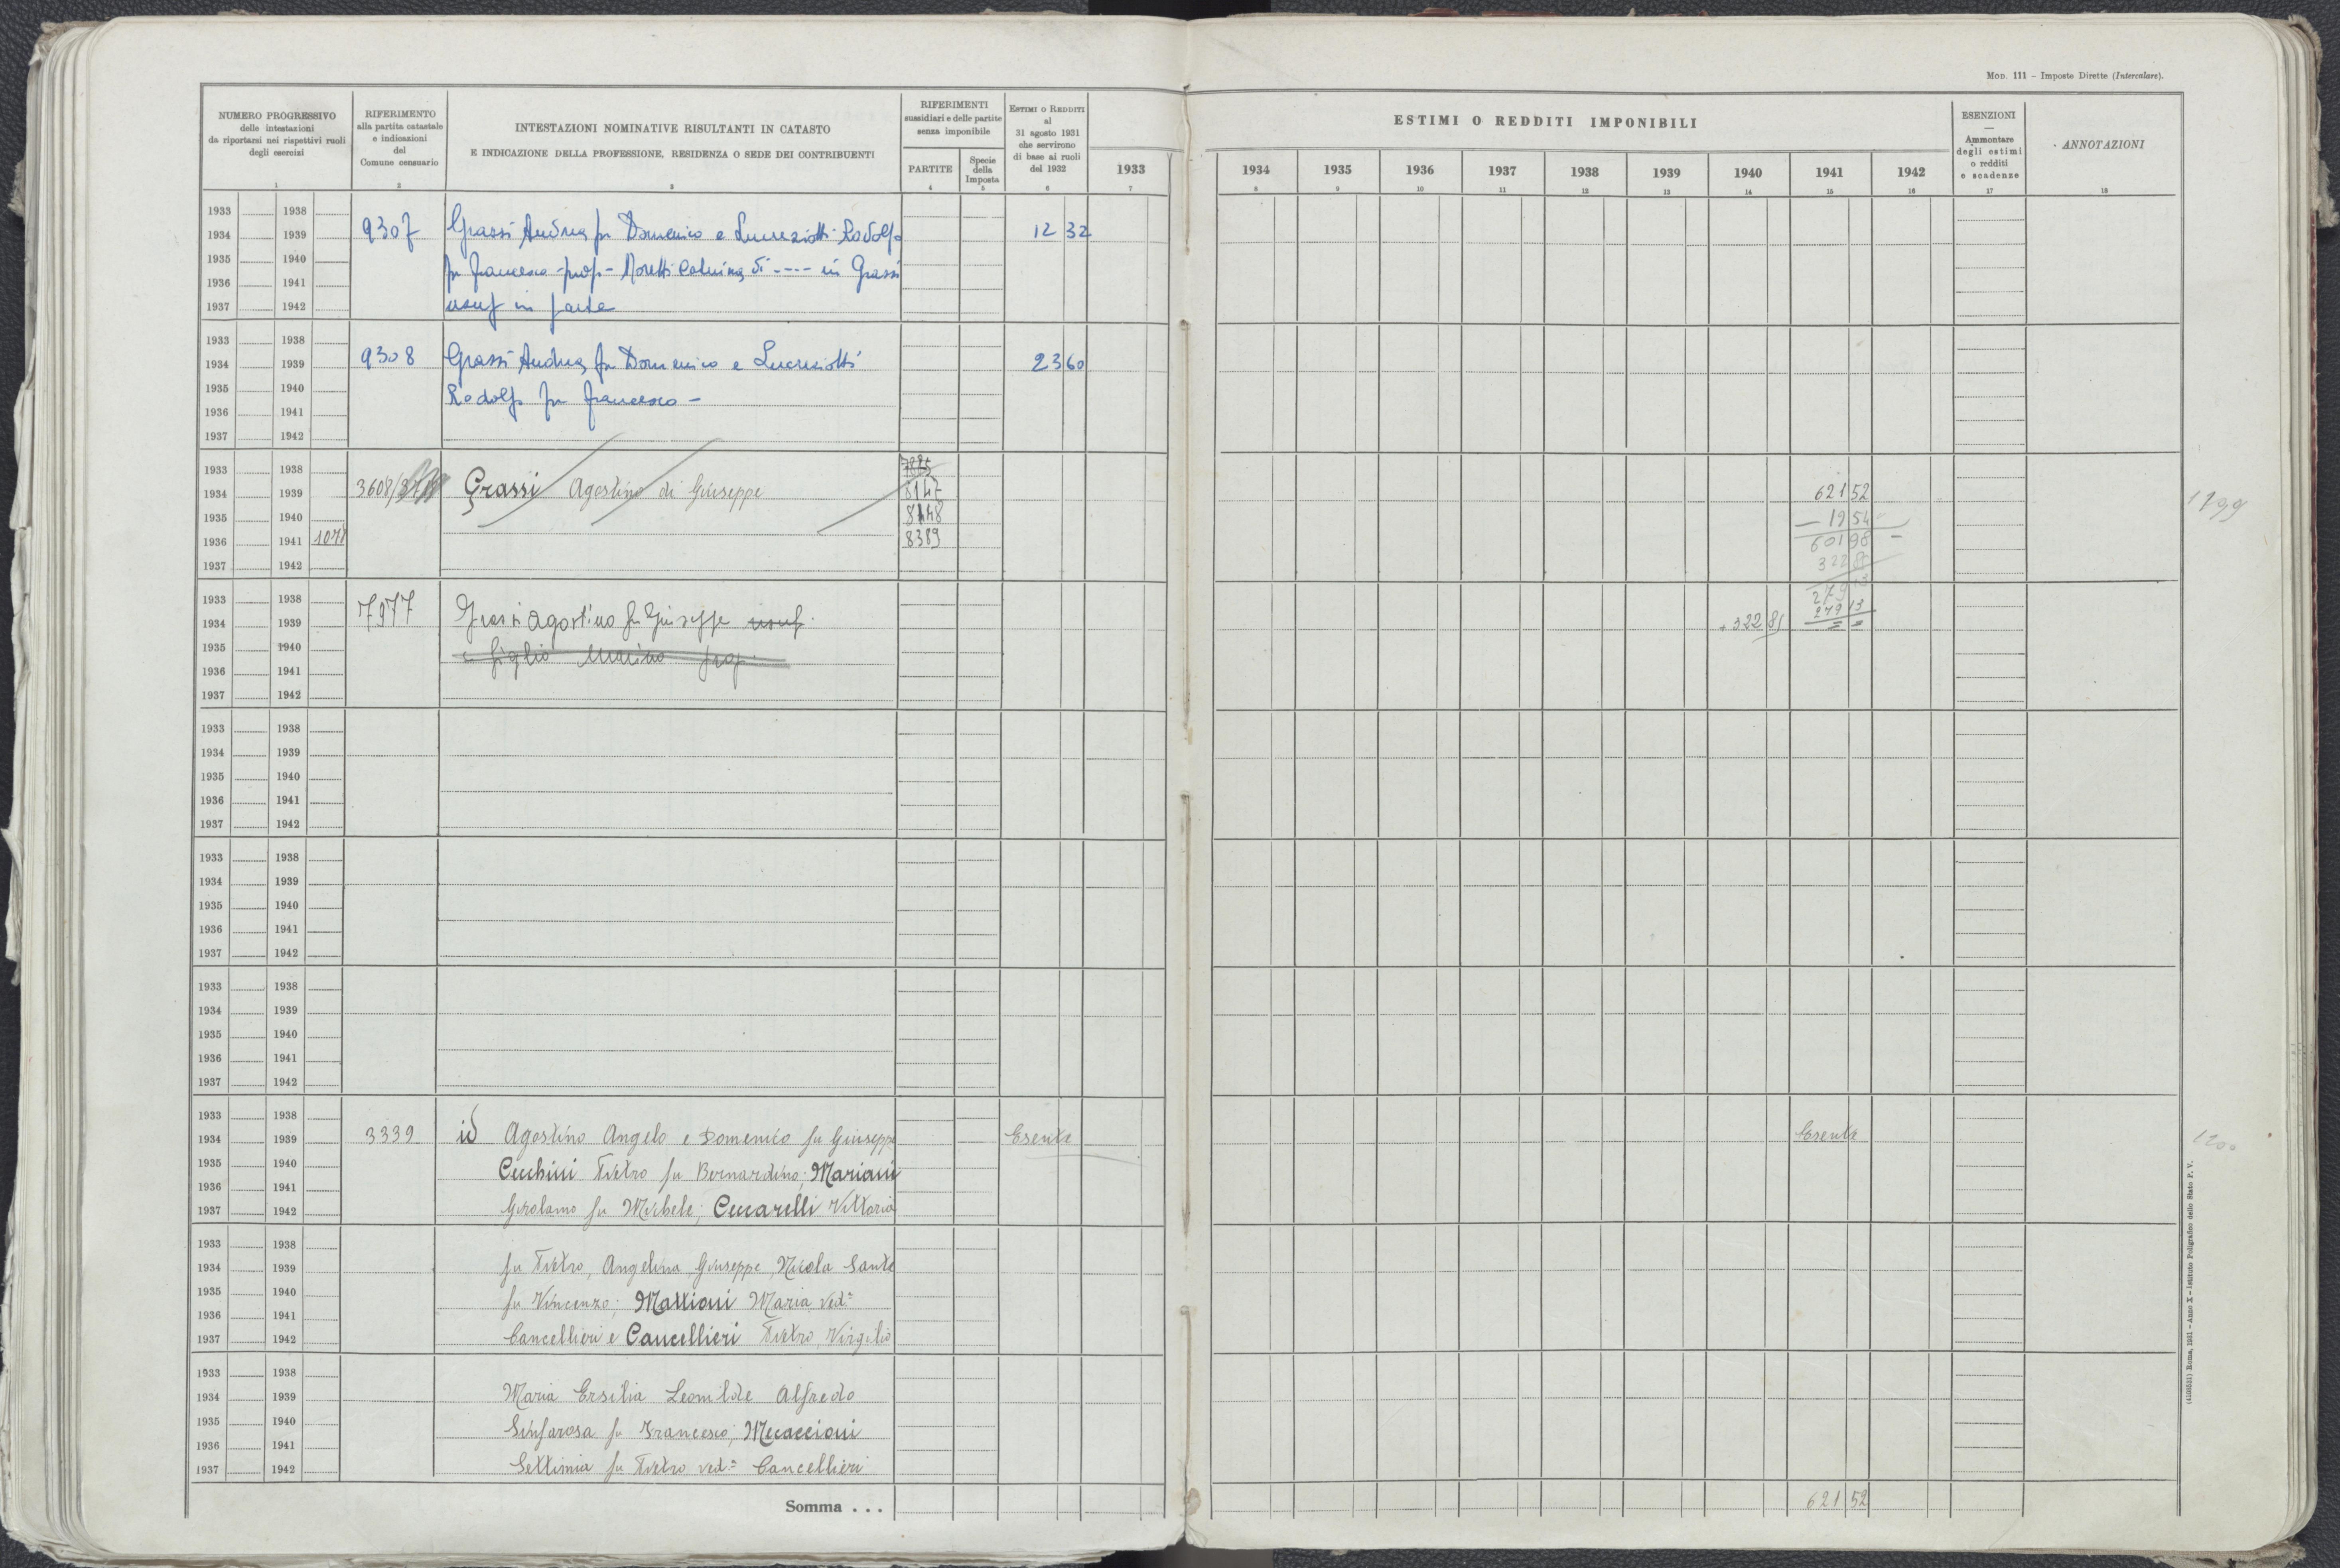 Mod. 111 - Imposte Dirette (Intercalare).
NUMERO PROGRESSIVO
delle intestazioni
da riportarsi nei rispettivi ruoli
degli esercizi
1
RIFERIMENTO
alla partita catastale
e indicazioni
del
Comune censuario
2
INTESTAZIONI NOMINATIVE RISULTANTI IN CATASTO
E INDICAZIONE DELLA PROFESSIONE, RESIDENZA O SEDE DEI CONTRIBUENTI
3
RIFERIMENTI
sussidiari e delle partite
senza imponibile
PARTITE
4
Specie
della
Imposta
5
Estimi o Redditi
al
31 agosto 1931
che servirono
di base ai ruoli
del 1932
6
1933
7
ESTIMI O REDDITI IMPONIBILI
1934 1935 1936 1937 1938 1939 1940 1941 1942
8 9 10 11 12 13 14 15 16
ESENZIONI
—
Ammontare
degli estimi
o redditi
e scadenze
17
ANNOTAZIONI
18
1933 1938
1934 1939 9307 Grassi Andrea fu Domenico e Lucreziotti Rodolfo 12 32
1935 1940 fu Francesco - prop - Moretti di ---- in Grassi
1936 1941
1937 1942 usuf in parte
1933 1938
1934 1939 9308 Grassi Andrea fu Domenico e Lucreziotti 23 60
1935 1940 Rodolfo fu Francesco -
1936 1941
1937 1942
1933 1938
1934 1939 3608/ Grassi Agostino di Giuseppe 8147 621 52 1199
1935 1940 8148 — 19 54
1936 1941 1071 8389 601 98 -
1937 1942 322 85
1933 1938 279 13
1934 1939 7977 Grassi Agostino fu Giuseppe usuf. + 322 85 279 13
1935 1940 e figlio Marino prop.
1936 1941
1937 1942
1933 1938
1934 1939
1935 1940
1936 1941
1937 1942
1933 1938
1934 1939
1935 1940
1936 1941
1937 1942
1933 1938
1934 1939
1935 1940
1936 1941
1937 1942
1933 1938
1934 1939 3339 id Agostino Angelo e Domenico fu Giuseppe Esente Esente 1200
1935 1940 Cecchini Pietro fu Bernardino; Mariani
1936 1941
1937 1942 Girolamo fu Michele; Ceccarelli Vittoria
1933 1938
1934 1939 fu Pietro, Angelina, Giuseppe, Nicola Sante
1935 1940 fu Vincenzo; Mattioni Maria ved.a
1936 1941
1937 1942 Cancellieri e Cancellieri Pietro, Virgilio
1933 1938
1934 1939 Maria Ersilia Leonilde Alfredo
1935 1940 Sinfarosa fu Francesco; Mecaccioni
1936 1941
1937 1942 Settimia fu Pietro ved.a Cancellieri
Somma . . . 621 52
(4108531) Roma, 1931 - Anno X - Istituto Poligrafico dello Stato P. V.